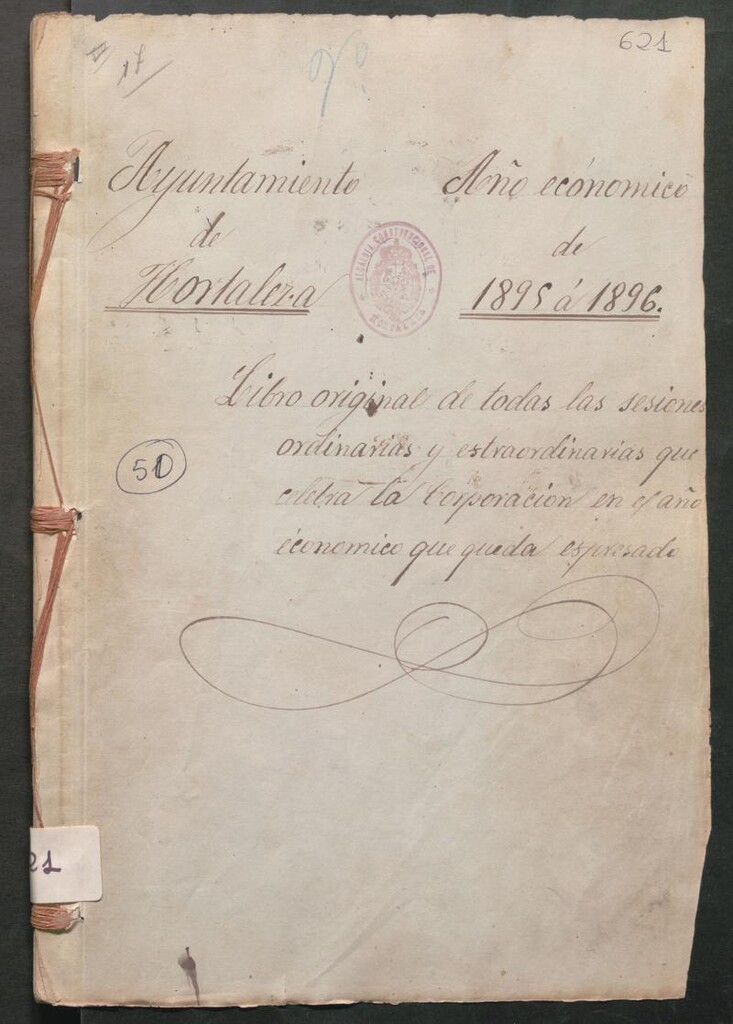 621
17
Ayuntamiento
de
Hortaleza
Año económico
de
1895 á 1896.
ALCALDIA CONSTITUCIONAL DE
HORTALEZA
Libro original de todas las sesiones
ordinarias y estraordinarias que
celebra la Corporacion en el año
économico que queda espresado
51
21